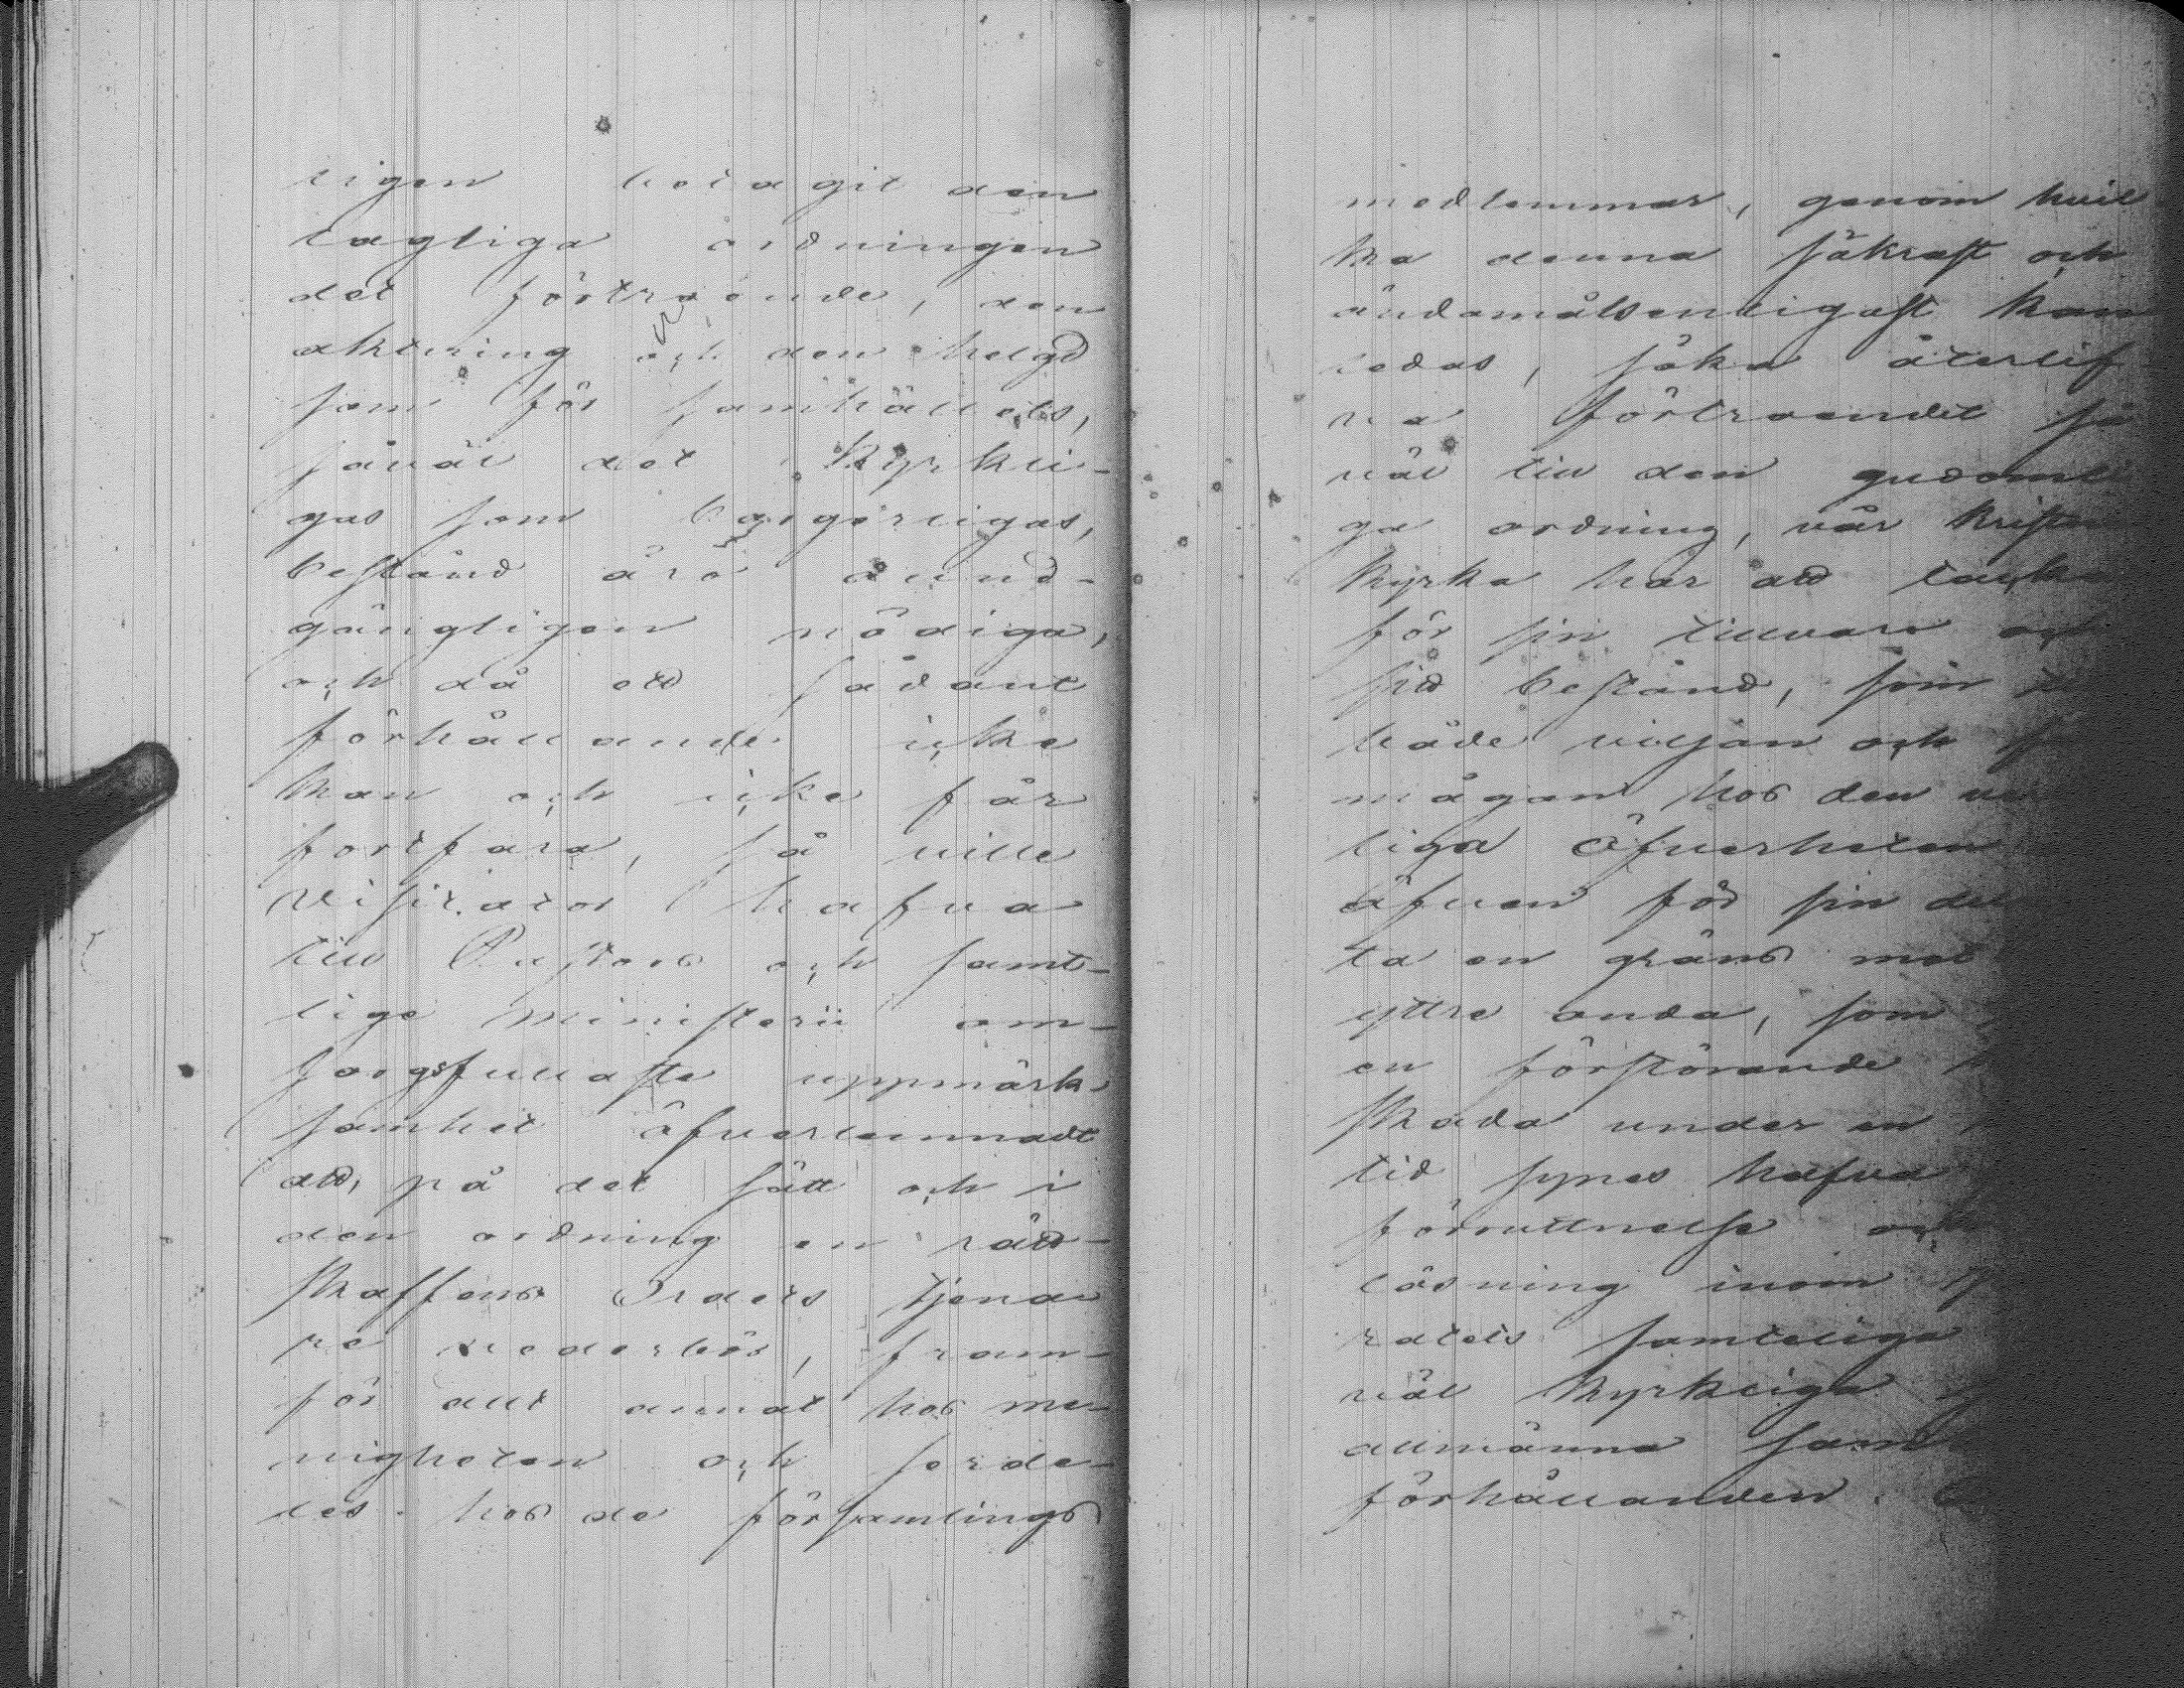 ligen betagit den
lagliga ordningen
det förtroende, den
aktning och den helgd
som för samhällets,
såväl det kyrkli-
gas som borgerligas,
bestånd äro ound-
gängligen nödiga,
och då ett sådant
förhållande icke
kan och icke får
fortfara, så ville
visitator hafva
till Pastors och samt-
lige ministerii om-
sorgsfullaste uppmärk-
samhet öfverlemnadt
att, på det sätt och i
den ordning en rätt-
skaffens Ordets tjena-
re vederbör, fram-
för allt annat hos me-
nigheten och serde-
les hos de församlings
medlemmar, genom hvil
ka denna säkrast och
ändamålsenligast kan
ledas, söka återlif
va förtroendet så
väl till den gudomli
ga ordning, vår kristna
kyrka har att tacka
för sin tillvaro och
sitt bestånd, som
både viljan och
mågan hos den
liga Öfverheten
äfven för sin del
ta en gräns mot
yttre anda, som
en förstörande
skada under en
tid synes hafva
förruttnelse och
lösning inom
ratets samteliga
väl kyrkliga
allmänna sam
förhållanden.